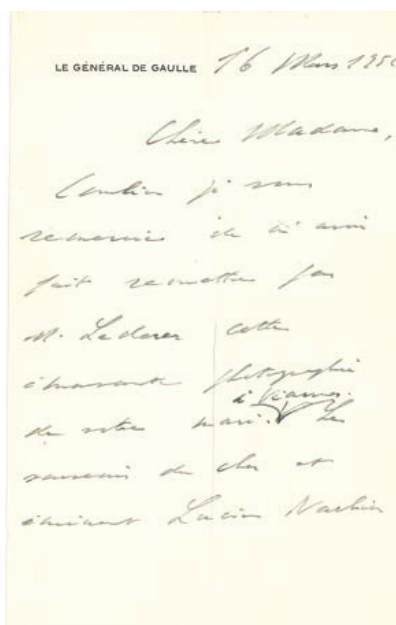 LE GÉNÉRAL DE GAULLE 16 Mars 195
Chère Madame,
Combien je vous
remercie de m'avoir
fait remettre par
M. Lederer cette
émouvante photographie
à Vianne.
de votre mari. Le
souvenir du cher et
éminent Lucien Nachin